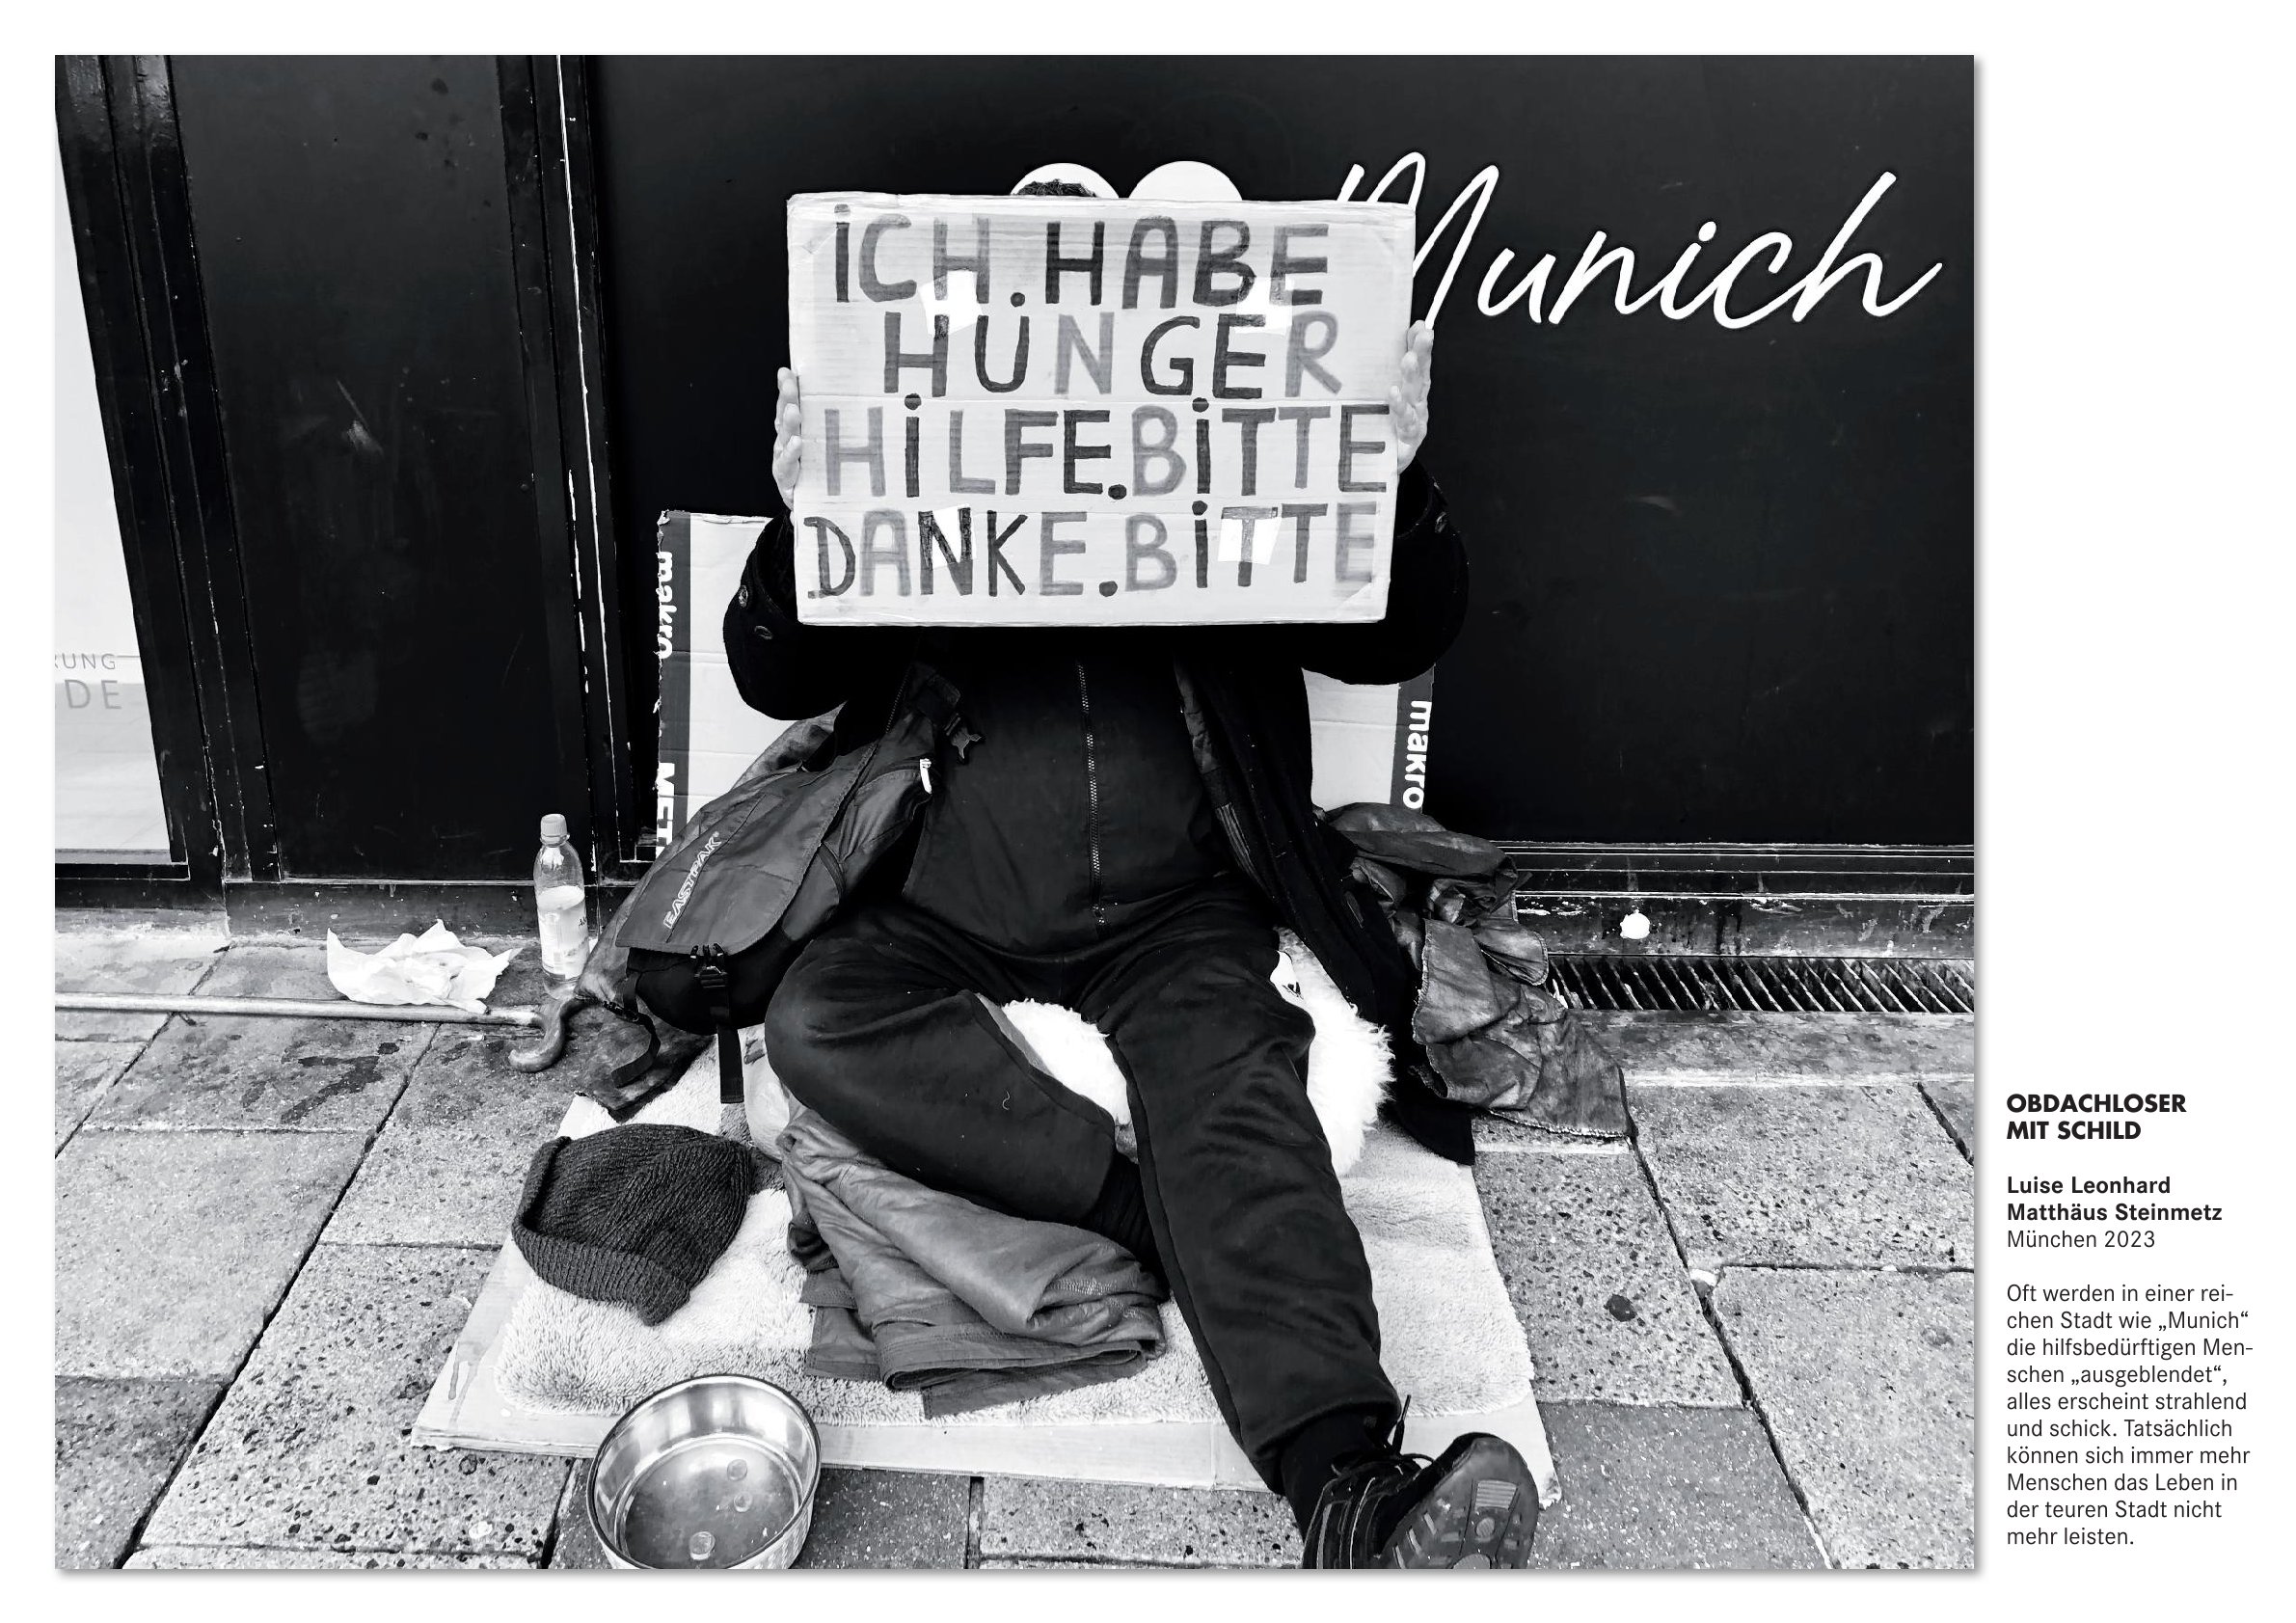 Munich
iCH.HABE
HUNGER
HiLFE.BiTTE
DANKE.BiTTE
makro
makro
EASTPAK
RUNG
DE
OBDACHLOSER
MIT SCHILD
Luise Leonhard
Matthäus Steinmetz
München 2023
Oft werden in einer rei-
chen Stadt wie „Munich“
die hilfsbedürftigen Men-
schen „ausgeblendet“,
alles erscheint strahlend
und schick. Tatsächlich
können sich immer mehr
Menschen das Leben in
der teuren Stadt nicht
mehr leisten.